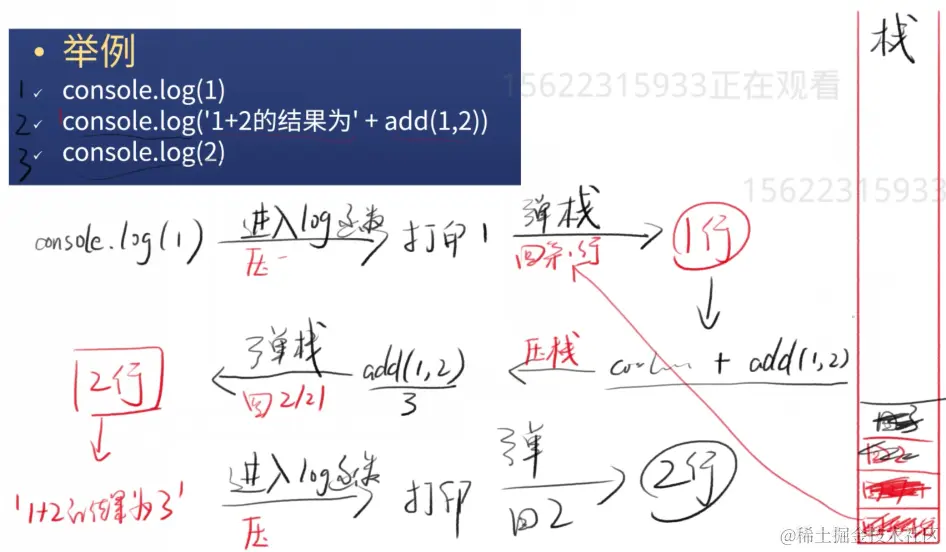 栈
• 举例
15622315933正在观看
1 ✓ console.log(1)
2 ✓ console.log('1+2的结果为' + add(1,2))
3 ✓ console.log(2)
15622315933
console.log(1) 进入log函数 打印1 弹栈 1行
压一
弹栈 压栈
2行 add(1,2) + add(1,2)
3
弹
'1+2的结果为3' 进入log函数 打印 2行
压 回2
@稀土掘金技术社区